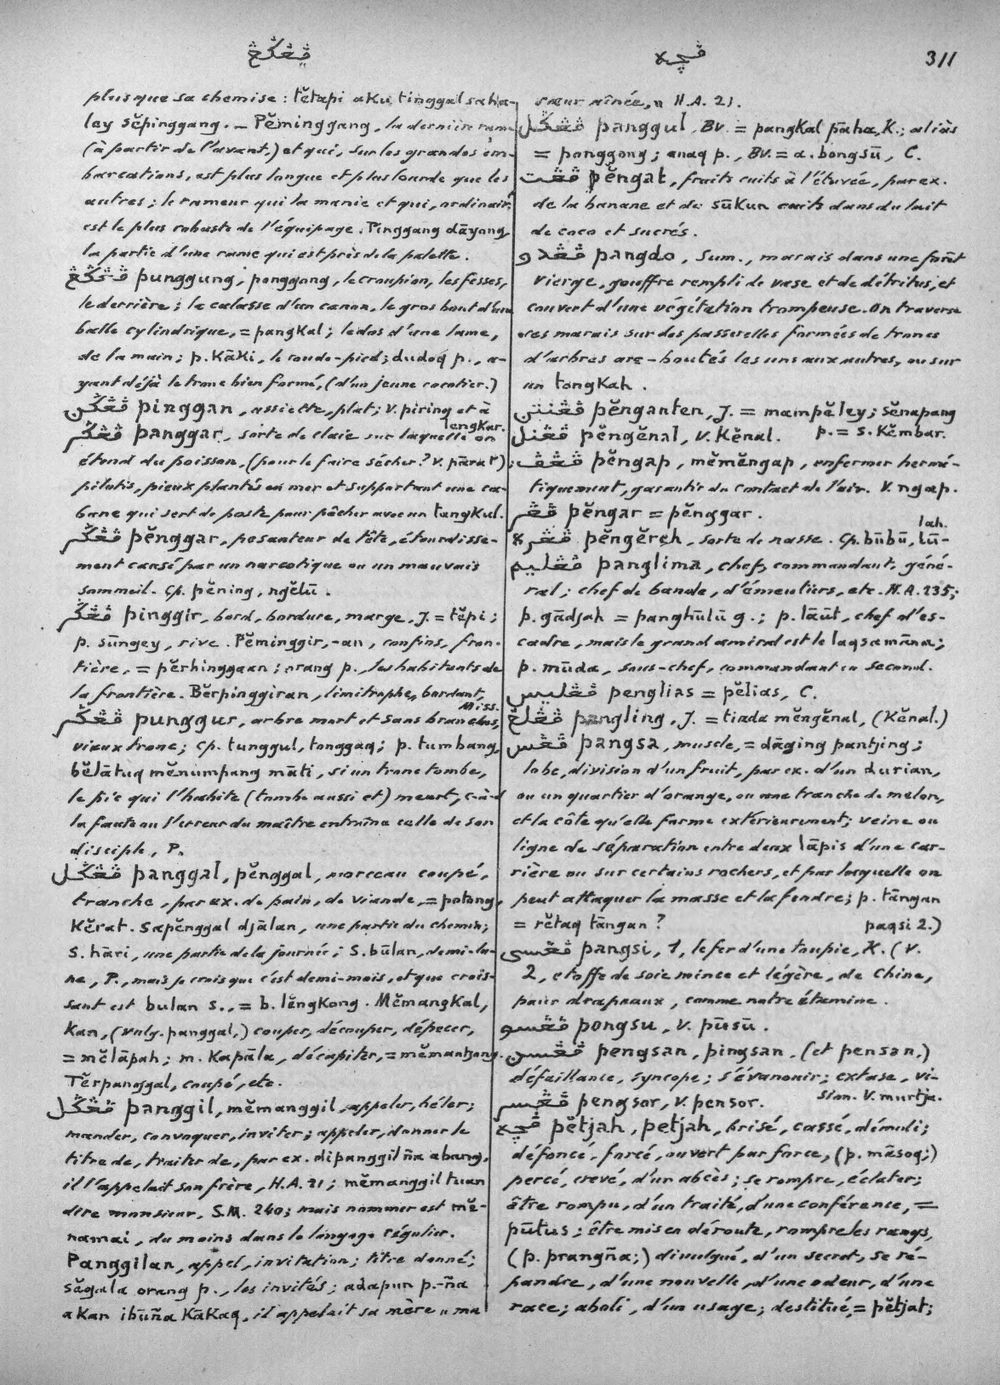 ڤيڠݢڠ
ڤچه
311
plus que sa chemise : tĕtapi aku tinggal saha-
ley sĕpinggang. — Pĕminggang, la dernière rame
(à partir de l'avant.) et qui, sur les grandes em-
barcations, est plus longue et plus lourde que les
autres ; le rameur qui la manie et qui, ordinairt
est le plus robuste de l'équipage. Pinggang dāyong,
la partie d'une rame qui est près de la palette.
ڤڠݢڠ punggung, ponggong, le croupion, les fesses,
le derrière ; la culasse d'un canon, le gros bout d'une
balle cylindrique, = pangkal ; le dos d'une lame,
de la main ; p. kāki, le coude-pied ; dudoq p., a-
yant déjà le tronc bien formé, (d'un jeune cocotier.)
ڤڠݢن pinggan, assiette, plat ; V. piring et à
lengkar.
ڤڠݢر panggar, sorte de claie sur laquelle on
étend du poisson, (pour le faire sécher ? V. pāra²) ;
pilotis, pieux plantés en mer et supportant une ca-
bane qui sert de poste pour pêcher avec un tangkul.
ڤڠݢر pĕnggar, pesanteur de tête, étourdisse-
ment causé par un narcotique ou un mauvais
sommeil. Cp. pĕning, ngĕlū.
ڤڠݢر pinggir, bord, bordure, marge, J. = tĕpi ;
p. sūngey, rive. Pĕminggir, -an, confins, fron-
tière, = pĕrhinggaan ; orang p., les habitants de
la frontière. Bĕrpinggiran, limitrophe, bordant,
Miss.
ڤڠݢر punggur, arbre mort et sans branches,
vieux tronc ; Cp. tunggul, tonggaq ; p. tumbang,
bĕlātuq mĕnumpang māti, si un tronc tombe,
le pic qui l'habite (tombe aussi et) meurt, c-à-d
la faute ou l'erreur du maître entraîne celle de son
disciple, P.
ڤڠݢل panggal, pĕnggal, morceau coupé,
tranche, par ex. de pain, de viande, = potong,
kĕrat. Sapĕnggal djālan, une partie du chemin ;
S. hāri, une partie de la journée ; S. būlan, demi-lu-
ne, P., mais je crois que c'est demi-mois, et que crois-
sant est bulan s., = b. lĕngkong. Mĕmangkal,
kan, (vulg. panggal,) couper, découper, dépecer,
= mĕlāpah ; m. kapāla, décapiter, = mĕmantjong.
Tĕrpanggal, coupé, etc.
ڤڠݢل panggil, mĕmanggil, appeler, héler ;
mander, convoquer, inviter ; appeler, donner le
titre de, traiter de, par ex. dipanggilña abang,
il l'appelait son frère, H.A. 21 ; mĕmanggil tuan
dire monsieur, S.M. 240 ; mais nommer est mĕ-
namai, du moins dans le langage régulier.
Panggilan, appel, invitation ; titre donné ;
sāgala orang p., les invités ; adapun p.-ña
akan ibūña kākaq, il appelait sa mère « ma
sœur aînée, » H.A. 21.
ڤڠݢل panggul, Bv. = pangkal pāha, K. ; aliàs
= panggong ; anaq p., Bv. = a. bongsū, C.
ڤڠت pĕngat, fruits cuits à l'étuvée, par ex.
de la banane et du sūkun cuits dans du lait
de coco et sucrés.
ڤڠدو pangdo, Sum., marais dans une forêt
vierge, gouffre rempli de vase et de détritus, et
couvert d'une végétation trompeuse. On traverse
ces marais sur des passerelles formées de troncs
d'arbres arc-boutés les uns aux autres, ou sur
un tongkah.
ڤڠنتن pĕnganten, J. = mampĕley ; sĕnapang
p. = s. kĕmbar.
ڤڠنل pĕngĕnal, V. kĕnal.
ڤڠڤ pĕngap, mĕmĕngap, enfermer hermé-
tiquement, garantir du contact de l'air. V. ngap.
ڤڠر pĕngar = pĕnggar.
lah.
ڤڠره pĕngĕreh, sorte de nasse. Cp. būbū, lū-
ڤڠليم panglima, chef, commandant, géné-
ral ; chef de bande, d'émeutiers, etc. H.A. 235 ;
p. gādjah = panghūlū g. ; p. lāūt, chef d'es-
cadre, mais le grand amiral est le laqsamāna ;
p. mūda, sous-chef, commandant en second.
ڤڠليس penglias = pĕlias, C.
ڤڠلڠ pangling, J. = tiada mĕngĕnal, (kĕnal.)
ڤڠس pangsa, muscle, = dāging pantjing ;
lobe, division d'un fruit, par ex. d'un durian,
ou un quartier d'orange, ou une tranche de melon,
et la côte qu'elle forme extérieurement ; veine ou
ligne de séparation entre deux lāpis d'une car-
rière ou sur certains rochers, et par lesquelle on
peut attaquer la masse et la fendre ; p. tāngan
= rĕtaq tāngan ?
paqsi 2.)
ڤڠسى pangsi, 1, le fer d'une toupie, K. (V.
2, étoffe de soie mince et légère, de Chine,
pour drapeaux, comme notre étamine.
ڤڠسو pongsu, V. pūsū.
ڤڠسن pengsan, pingsan, (et pensan,)
défaillance, syncope ; s'évanouir ; extase, vi-
sion. V. murtja.
ڤڠسر pengsor, V. pensor.
ڤچه pĕtjah, petjah, brisé, cassé, démoli ;
défoncé, forcé, ouvert par force, (p. māsoq ;)
percé, crevé, d'un abcès ; se rompre, éclater ;
être rompu, d'un traité, d'une conférence, =
pūtus ; être mis en déroute, rompre les rangs,
(p. prangña ;) divulgué, d'un secret, se ré-
pandre, d'une nouvelle, d'une odeur, d'une
race ; aboli, d'un usage ; destitué, = pĕtjat ;